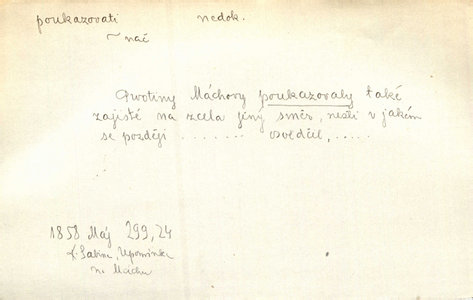 poukazovati nedok.
~ nač
Prvotiny Máchovy poukazovaly také
zajisté na zcela jiný směr, nežli v jakém
se později ....... osvědčil, .....
1858 Máj 299,24
K. Sabina, Upomínka
na Máchu